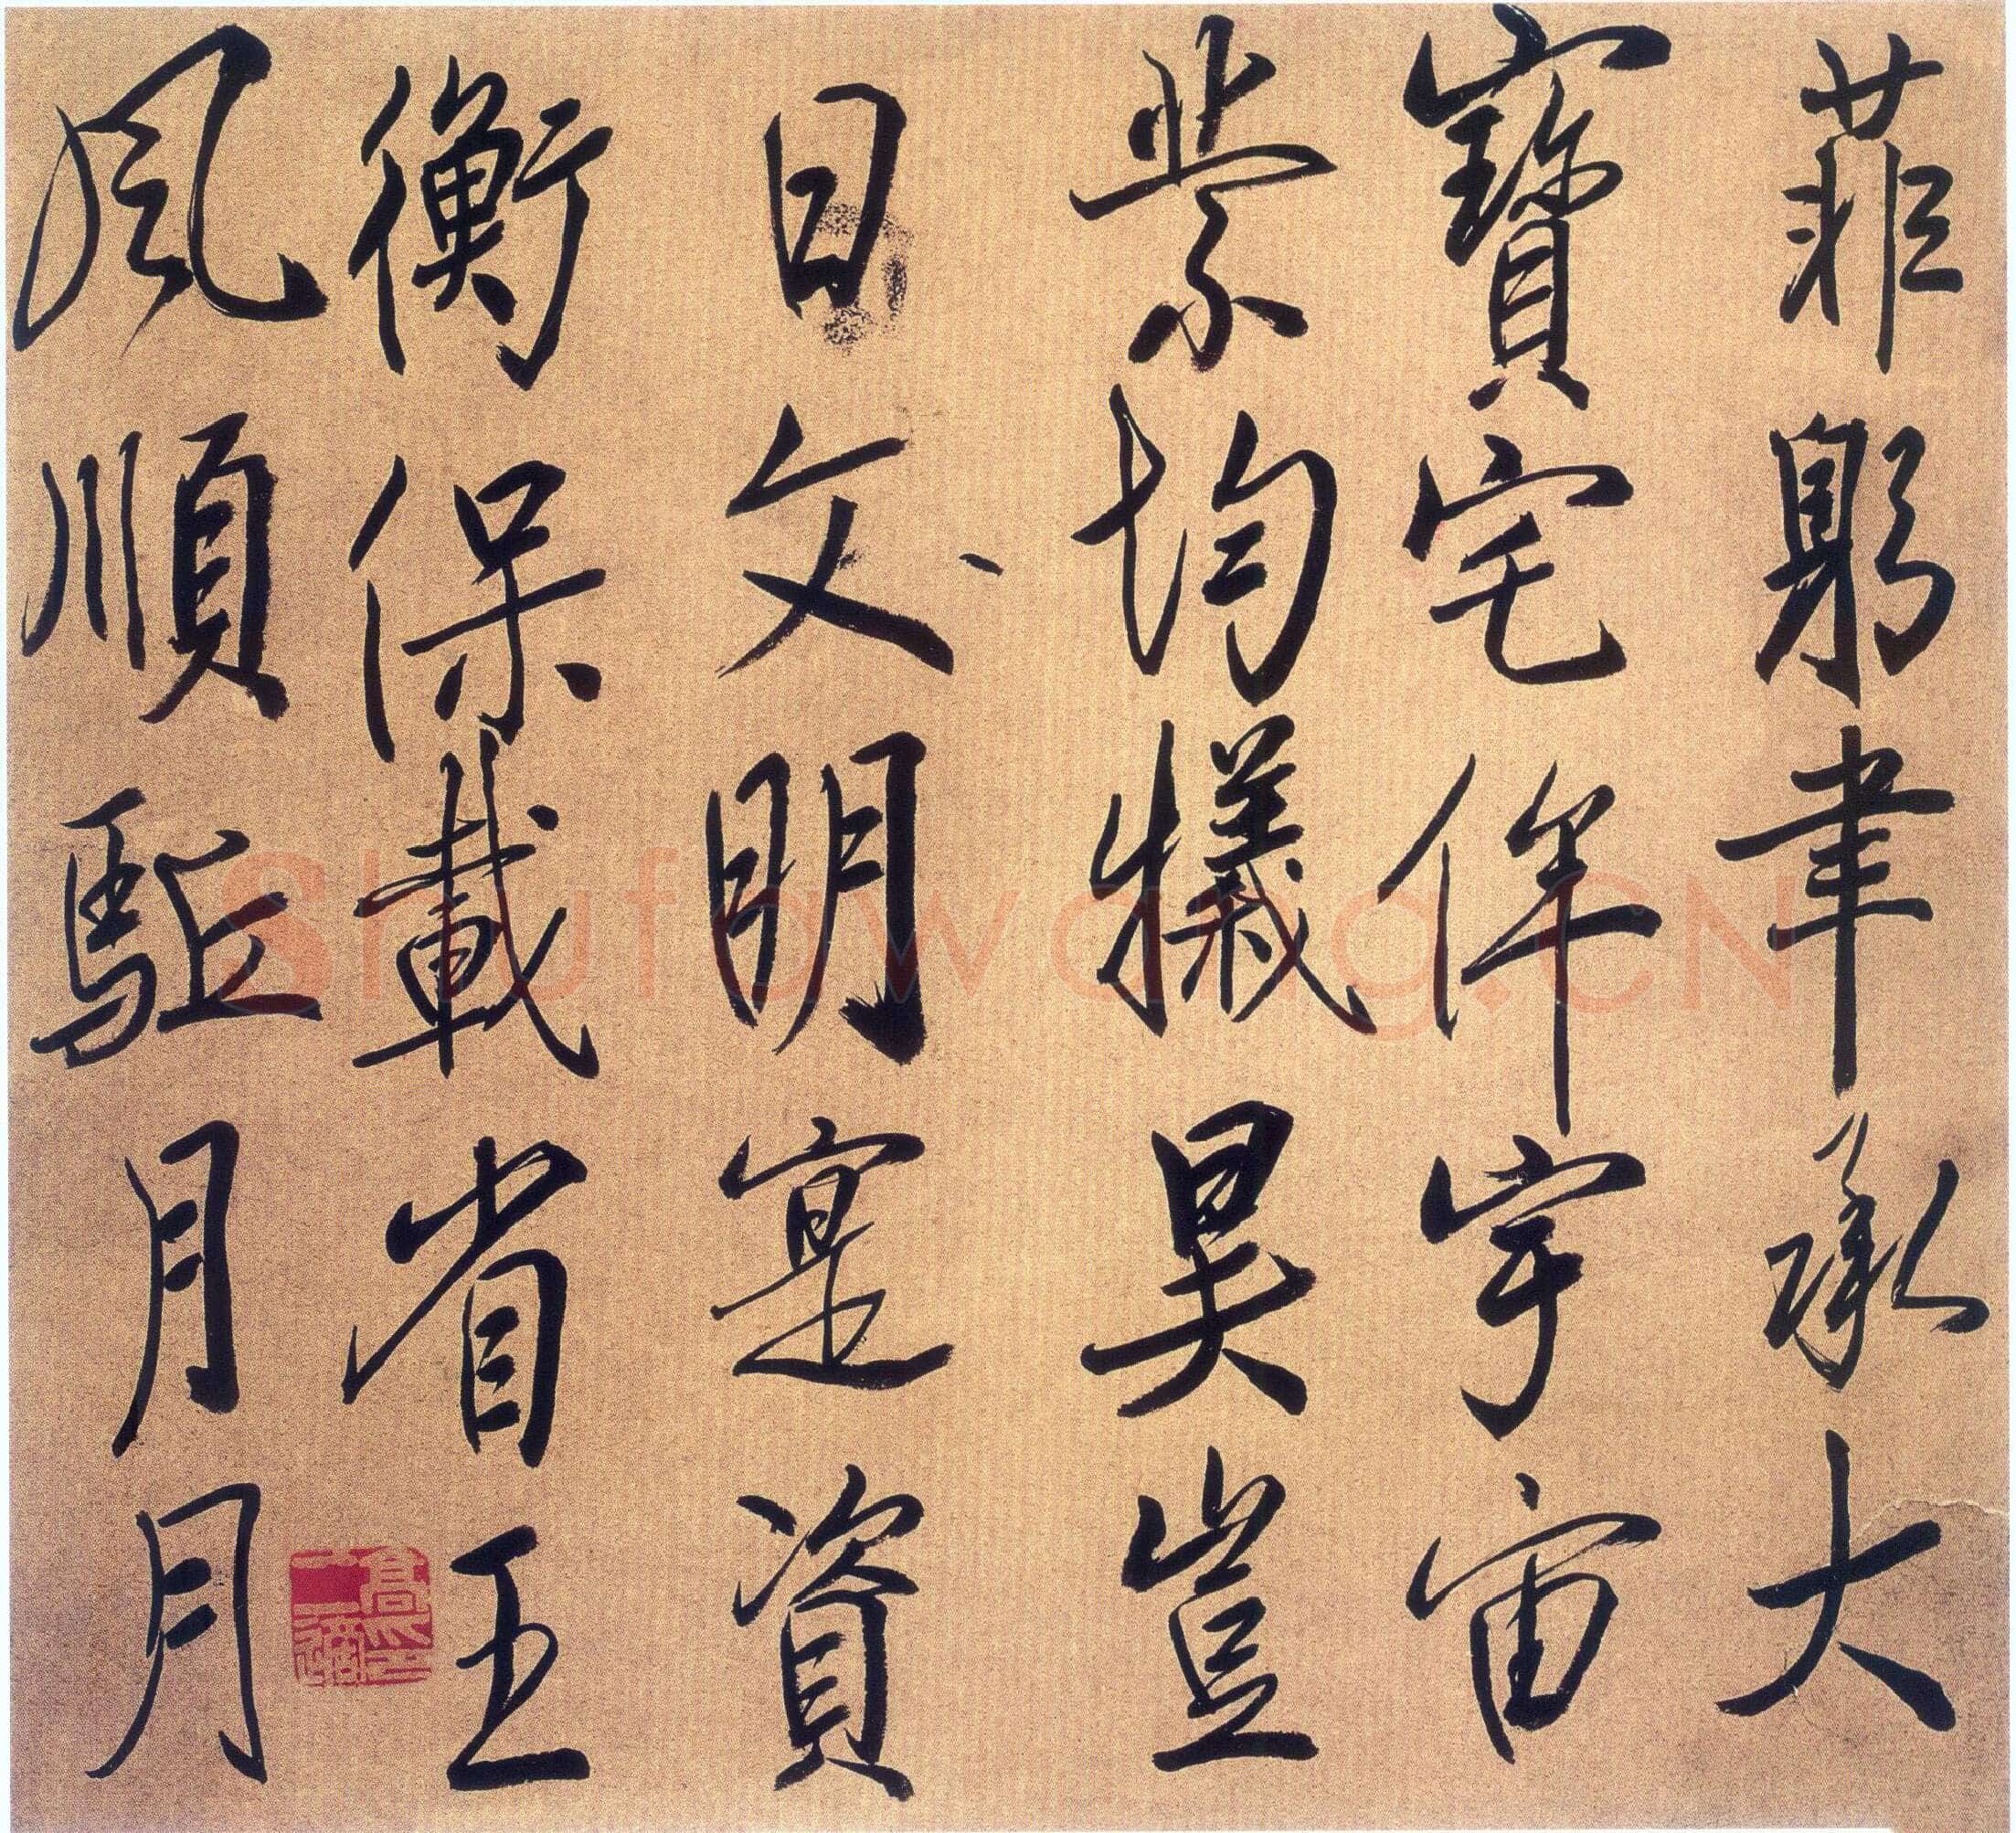 菲躬聿承大
寶宅侔宇宙
業均犧昊豈
日文明寔資
衡保載省王
風順驅月月
Shufawang.CN